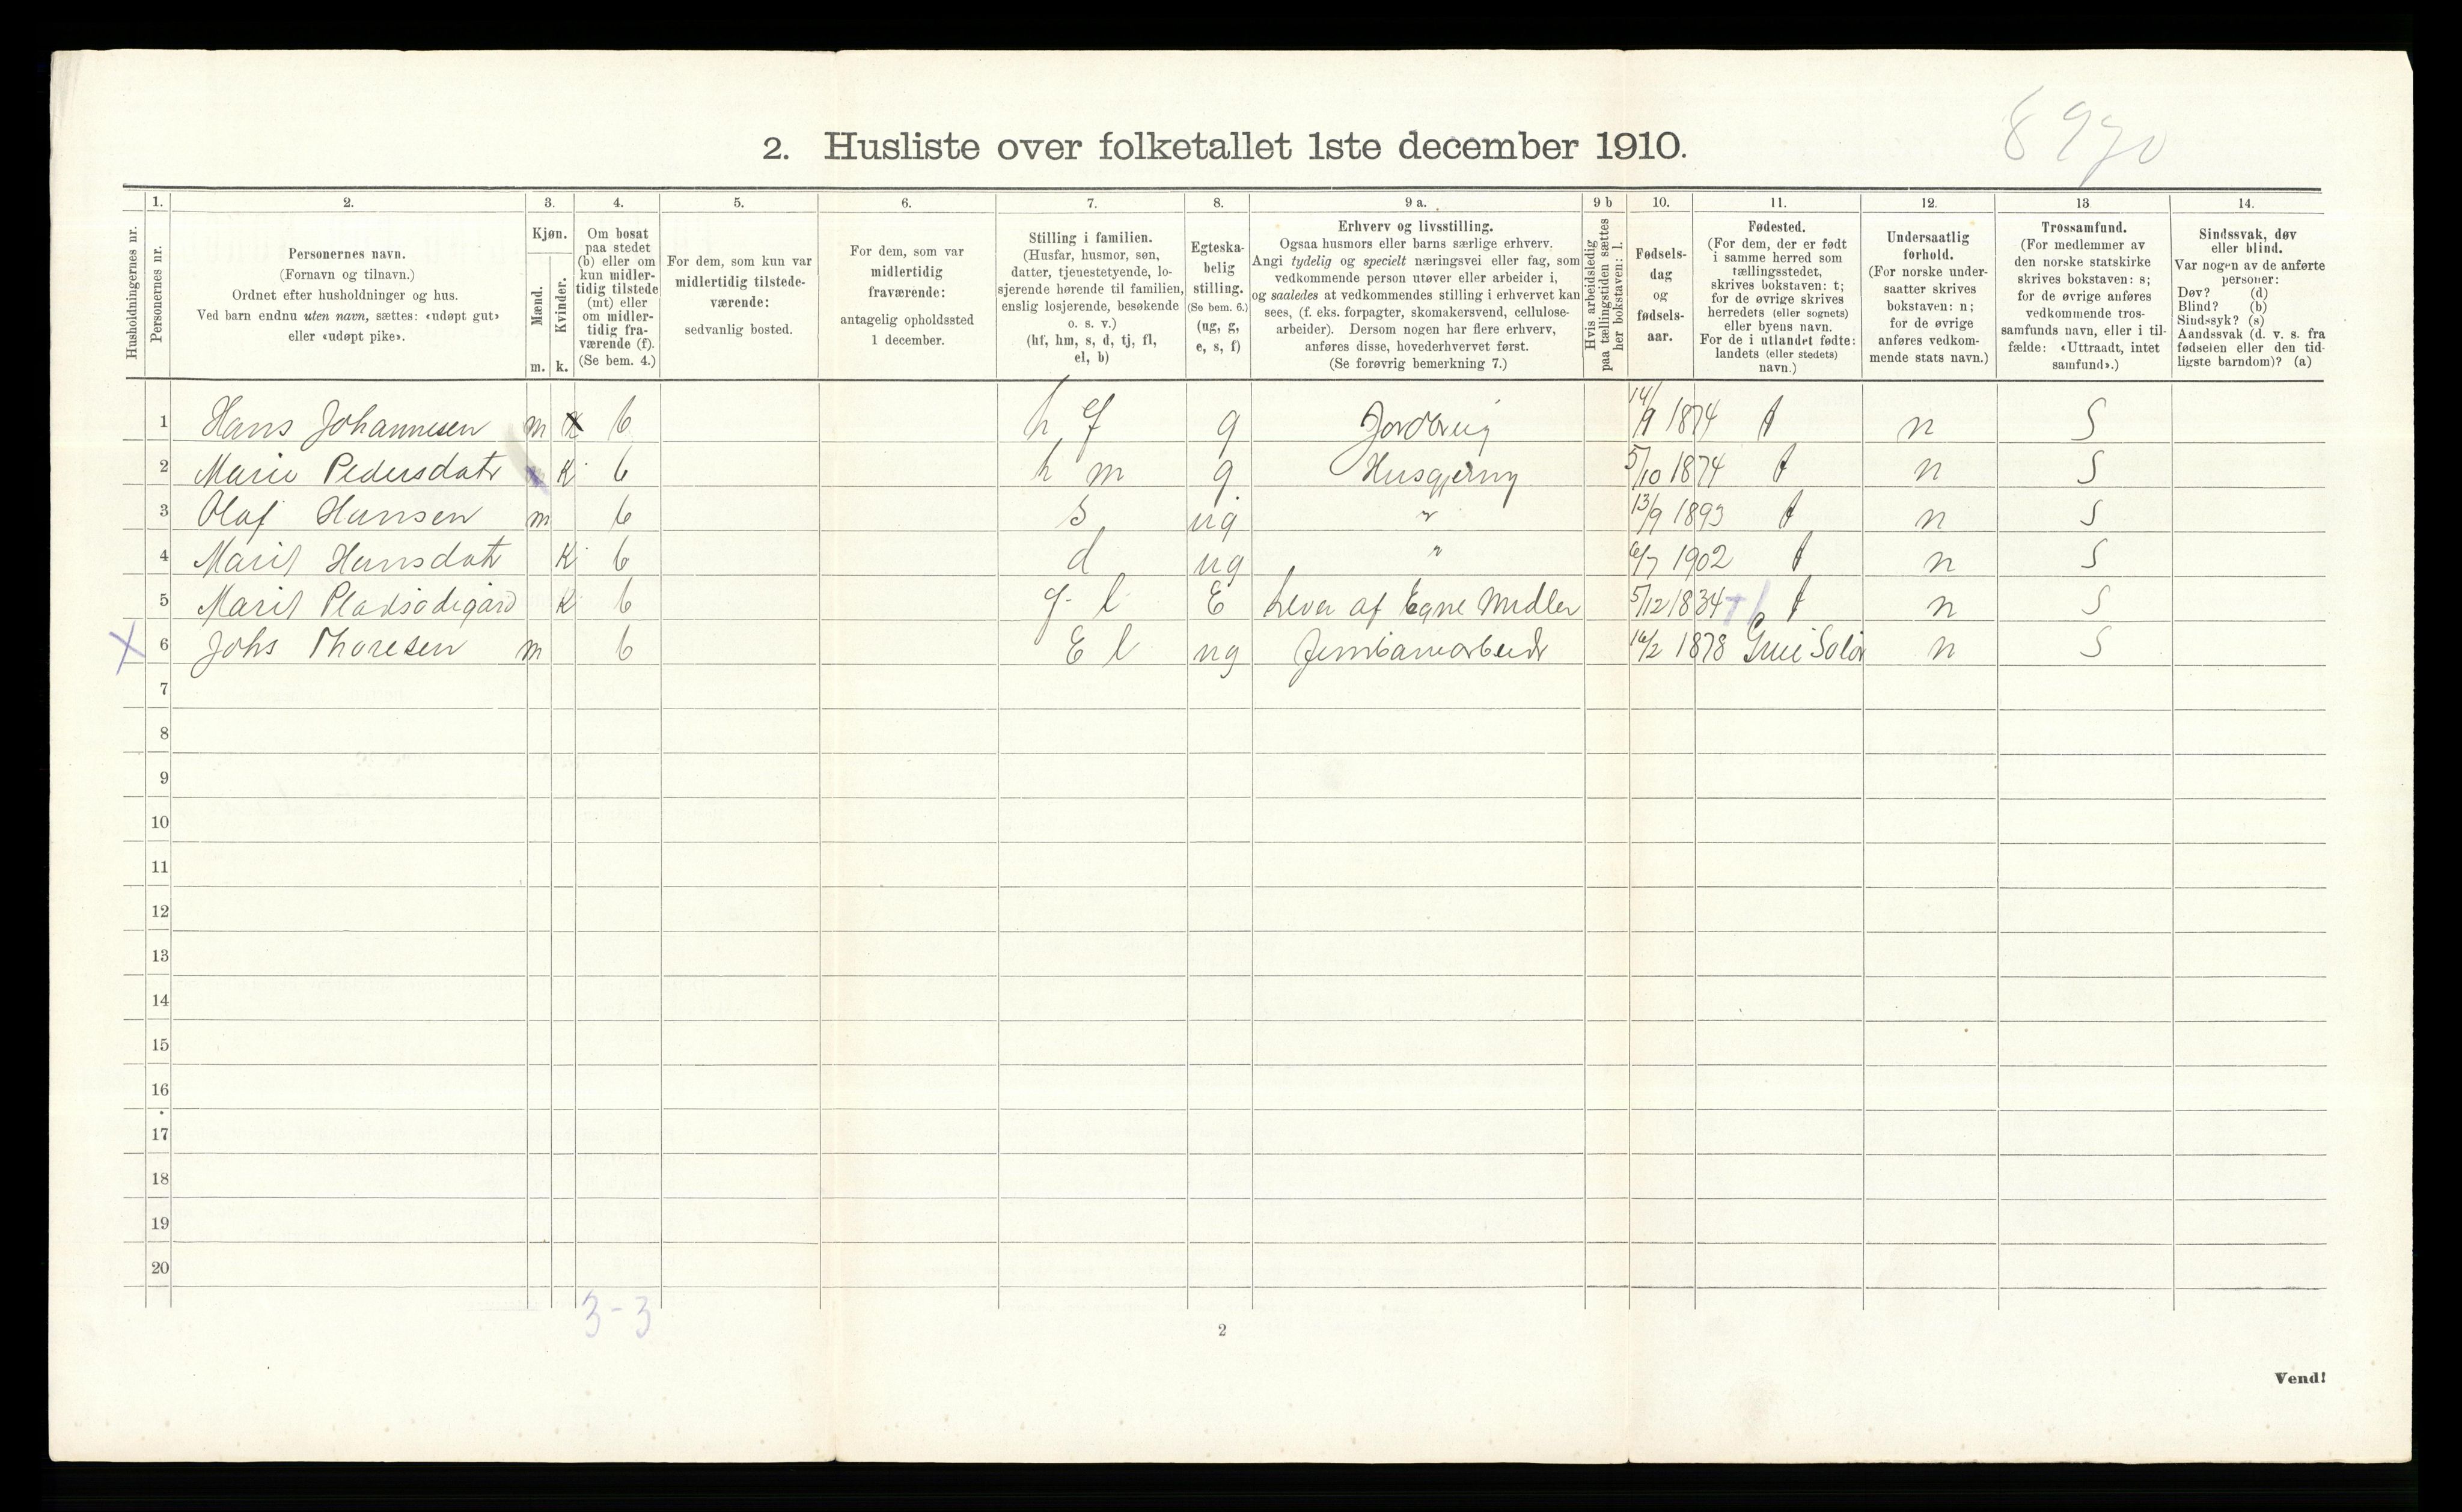 8970
2. Husliste over folketallet 1ste december 1910.
Husholdningernes nr.
1. Personernes nr.
2. Personernes navn.
(Fornavn og tilnavn.)
Ordnet efter husholdninger og hus.
Ved barn endnu uten navn, sættes: «udøpt gut»
eller «udøpt pike».
3. Kjøn.
Mænd. m.
Kvinder. k.
4. Om bosat
paa stedet
(b) eller om
kun midler-
tidig tilstede
(mt) eller
om midler-
tidig fra-
værende (f).
(Se bem. 4.)
5. For dem, som kun var
midlertidig tilstede-
værende:
sedvanlig bosted.
6. For dem, som var
midlertidig
fraværende:
antagelig opholdssted
1 december.
7. Stilling i familien.
(Husfar, husmor, søn,
datter, tjenestetyende, lo-
sjerende hørende til familien,
enslig losjerende, besøkende
o. s. v.)
(hf, hm, s, d, tj, fl,
el, b)
8. Egteska-
belig
stilling.
(Se bem. 6.)
(ug, g,
e, s, f)
9 a. Erhverv og livsstilling.
Ogsaa husmors eller barns særlige erhverv.
Angi tydelig og specielt næringsvei eller fag, som
vedkommende person utøver eller arbeider i,
og saaledes at vedkommendes stilling i erhvervet kan
sees, (f. eks. forpagter, skomakersvend, cellulose-
arbeider). Dersom nogen har flere erhverv,
anføres disse, hovederhvervet først.
(Se forøvrig bemerkning 7.)
9 b Hvis arbeidsledig
paa tællingstiden sættes
her bokstaven: l.
10. Fødsels-
dag
og
fødsels-
aar.
11. Fødested.
(For dem, der er født
i samme herred som
tællingsstedet,
skrives bokstaven: t;
for de øvrige skrives
herredets (eller sognets)
eller byens navn.
For de i utlandet fødte:
landets (eller stedets)
navn.)
12. Undersaatlig
forhold.
(For norske under-
saatter skrives
bokstaven: n;
for de øvrige
anføres vedkom-
mende stats navn.)
13. Trossamfund.
(For medlemmer av
den norske statskirke
skrives bokstaven: s;
for de øvrige anføres
vedkommende tros-
samfunds navn, eller i til-
fælde: «Uttraadt, intet
samfund».)
14. Sindssvak, døv
eller blind.
Var nogen av de anførte
personer:
Døv? (d)
Blind? (b)
Sindssyk? (s)
Aandssvak (d. v. s. fra
fødselen eller den tid-
ligste barndom)? (a)
1 Hans Johannesen m b h f g Jordbrug 14/9 1874 t n S
2 Marie Pedersdatr K b h m g Husgjerning 5/10 1874 t n S
3 Olaf Hansen m b s ug " 13/9 1893 t n S
4 Marit Hansdatr K b d ug " 6/7 1902 t n S
5 Marit Pladsødegård K b f l E Lever af Egne Midler 5/12 1834 t n S
X 6 Johs Thoresen m b E l ug Jernbanearbeidr 16/2 1878 Grue Solør n S
7
8
9
10
11
12
13
14
15
16
17
18
19
20
3-3
2
Vend!